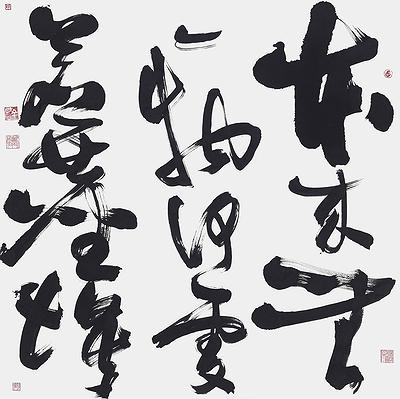 本来無
一物何處
惹塵埃